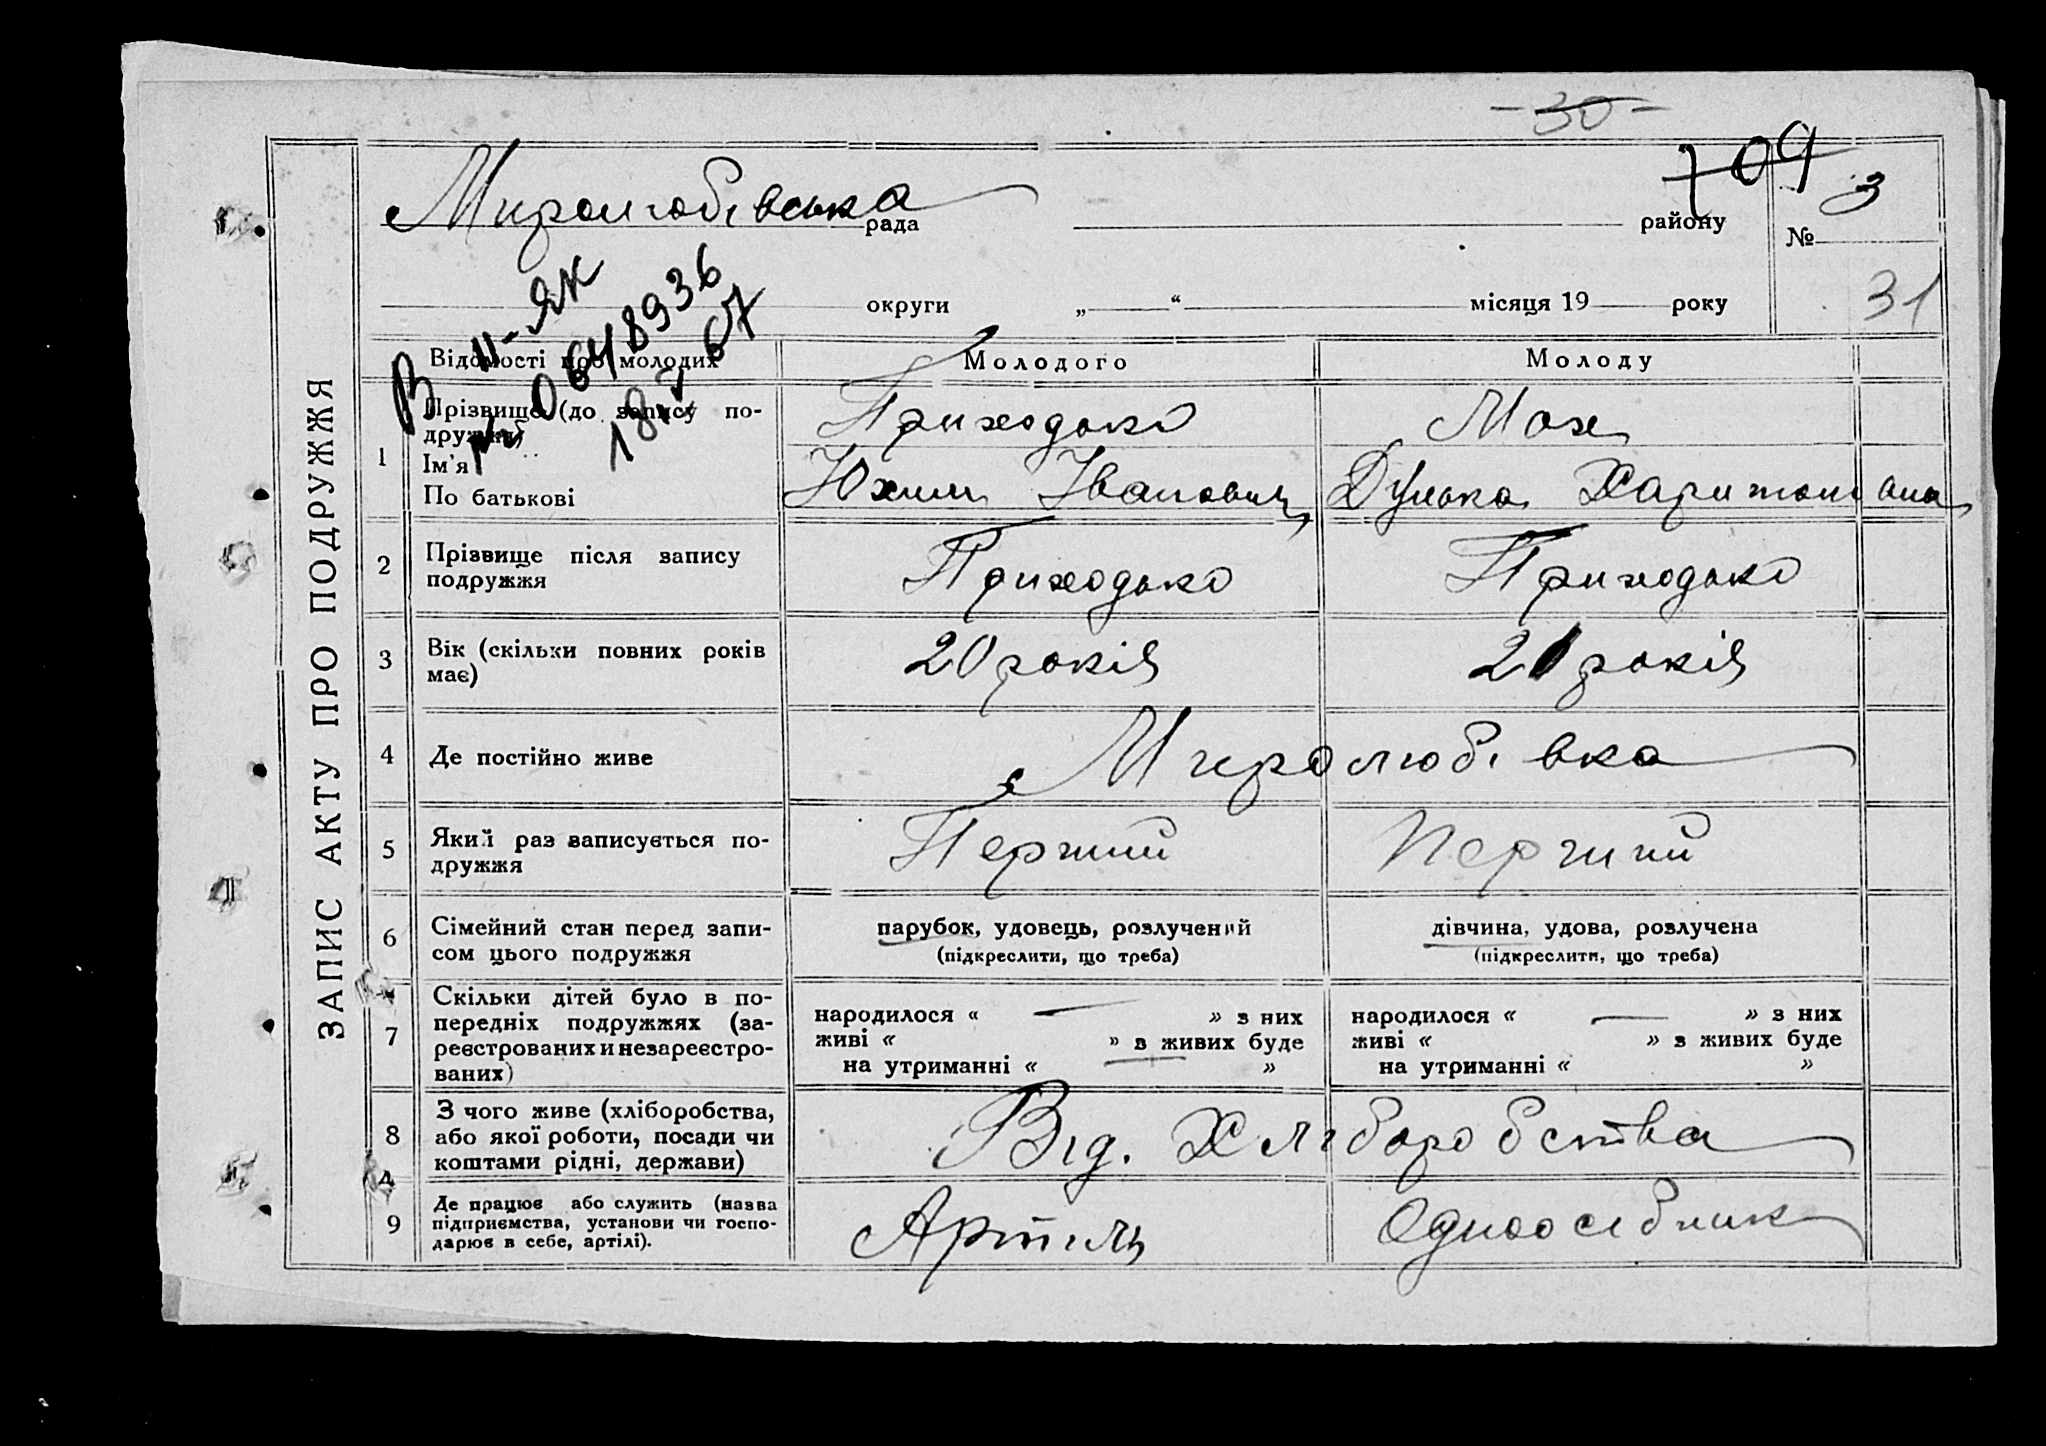 - 30 -
ЗАПИС АКТУ ПРО ПОДРУЖЖЯ
Миролюбівська рада району № 3
709
округи „ “ місяця 19 року
31
В п-як
№ 0648936
18 V 67
Відомості про молодих Молодого Молоду
1 Прізвище (до запису подружжя) Приходько Мох
Ім'я
По батькові Юхим Іванович Дунька Харитонівна
2 Прізвище після запису подружжя Приходько Приходько
3 Вік (скільки повних років має) 20 років 21 років
4 Де постійно живе с Миролюбівка
5 Який раз записується подружжя Перший Перший
6 Сімейний стан перед записом цього подружжя
парубок, удовець, розлучений дівчина, удова, розлучена
(підкреслити, що треба) (підкреслити, що треба)
7 Скільки дітей було в попередніх подружжях (зареєстрованих и незареєстрованих)
народилося « — » з них народилося « — » з них
живі « » з живих буде живі « » з живих буде
на утриманні « — » на утриманні « »
8 З чого живе (хліборобства, або якої роботи, посади чи коштами рідні, держави) Від. Хліборобства
9 Де працює або служить (назва підприємства, установи чи господарює в себе, артілі). Артиль Одноосібник